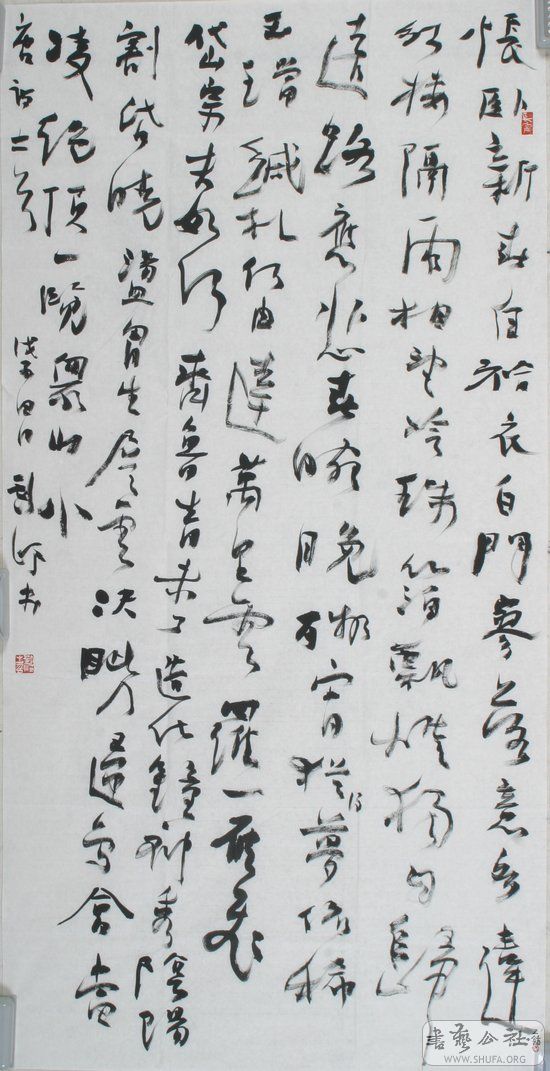 悵臥新春白袷衣白門寥落意多違
紅樓隔雨相望冷珠箔飄燈獨自歸
遠路應悲春晼晚殘宵猶得夢依稀
玉璫緘札何由達萬里雲羅一雁飛
岱宗夫如何齊魯青未了造化鍾神秀陰陽
割昏曉盪胸生層雲決眥入歸鳥會當
凌絕頂一覽眾山小
唐詩二首
戊子 書
書藝公社
WWW.SHUFA.ORG